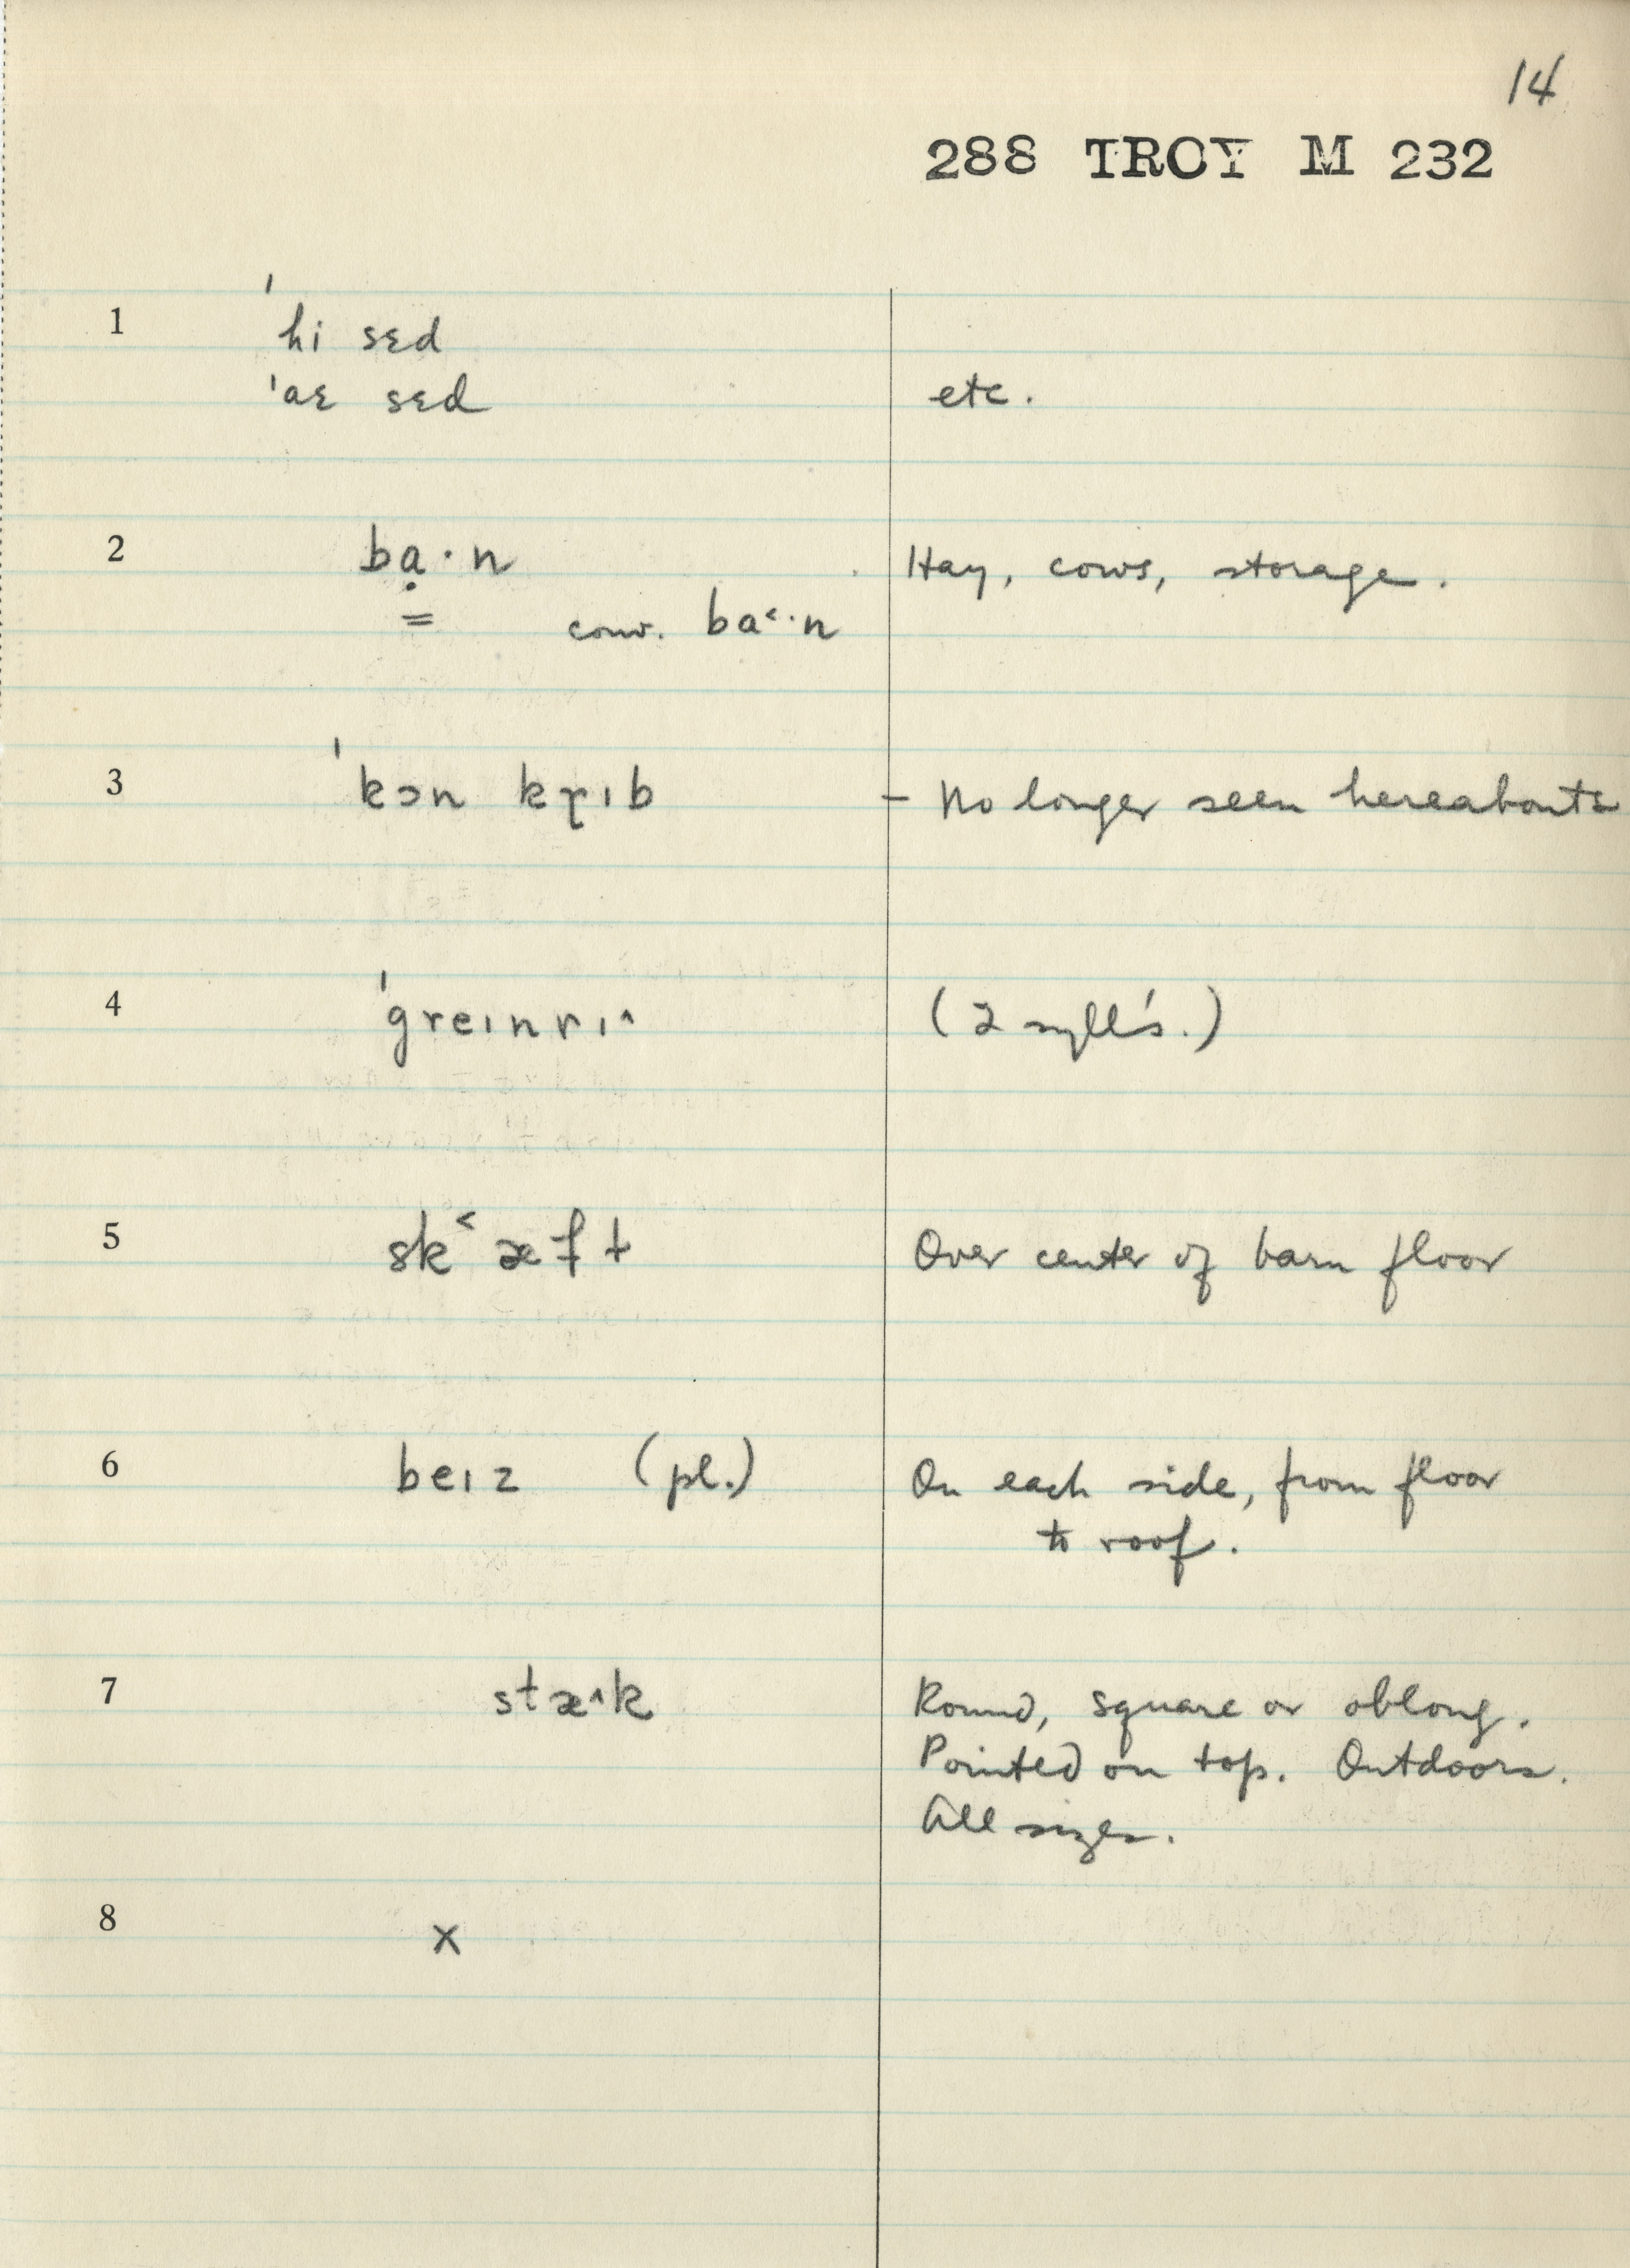 14
288 TROY M 232
1 ˈhi sɛd
ˈaɛ sɛd etc.
2 bạ·n Hay, cows, storage.
= conv. ba˂·n
3 ˈkɔn krɪb – No longer seen hereabouts
4 ˈgreɪnrɪ^ (2 syll's.)
5 sk˂æft Over center of barn floor
6 beɪz (pl.) On each side, from floor
to roof.
7 stæ^k Round, square or oblong.
Pointed on top. Outdoors.
All sizes.
8 x